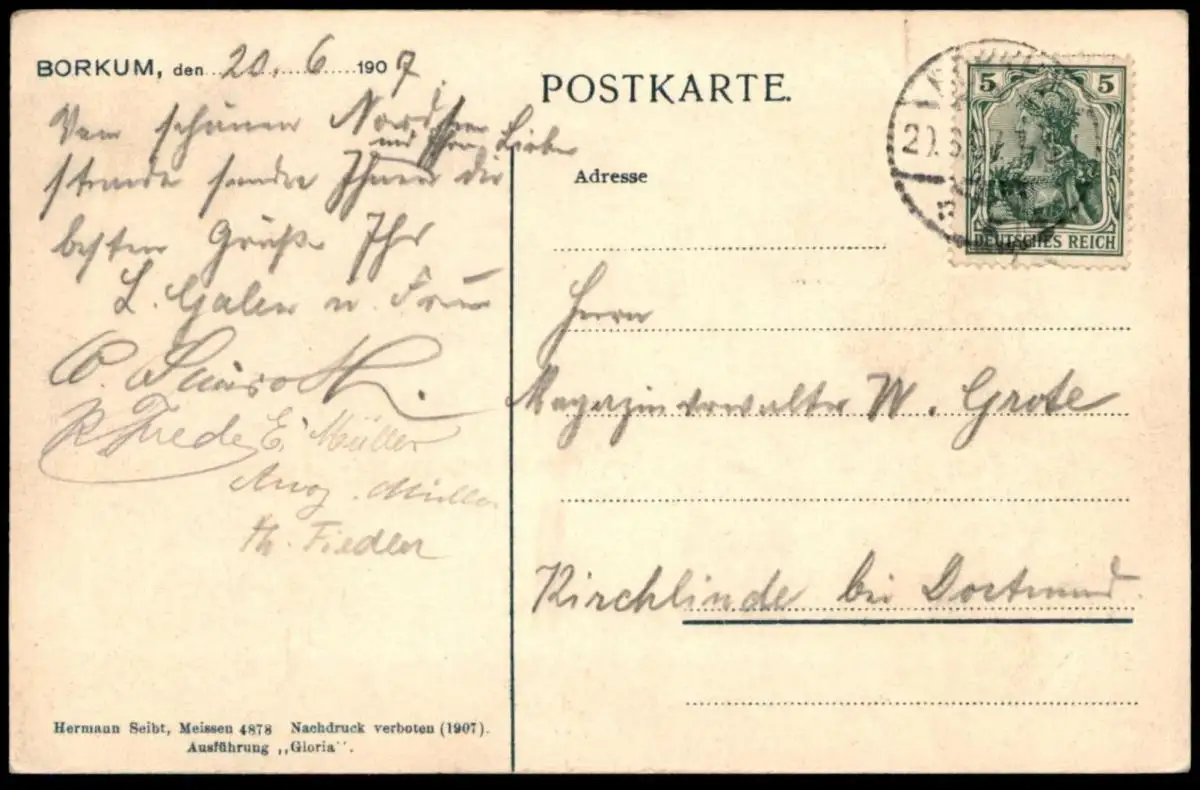 BORKUM, den 20. 6 1907
Vom schönen Nordsee
und Ihren Lieben
strande sende Ihnen die
besten Grüße Ihr
L. Galen u. Frau
R. Frede E. Müller
Aug. Müller
Th. Fiedler
Hermann Seibt, Meissen 4878 Nachdruck verboten (1907).
Ausführung „Gloria“.
POSTKARTE.
5 5
DEUTSCHES REICH
Adresse
Herrn
Magazinverwalter W. Grote
Kirchlinde bei Dortmund.